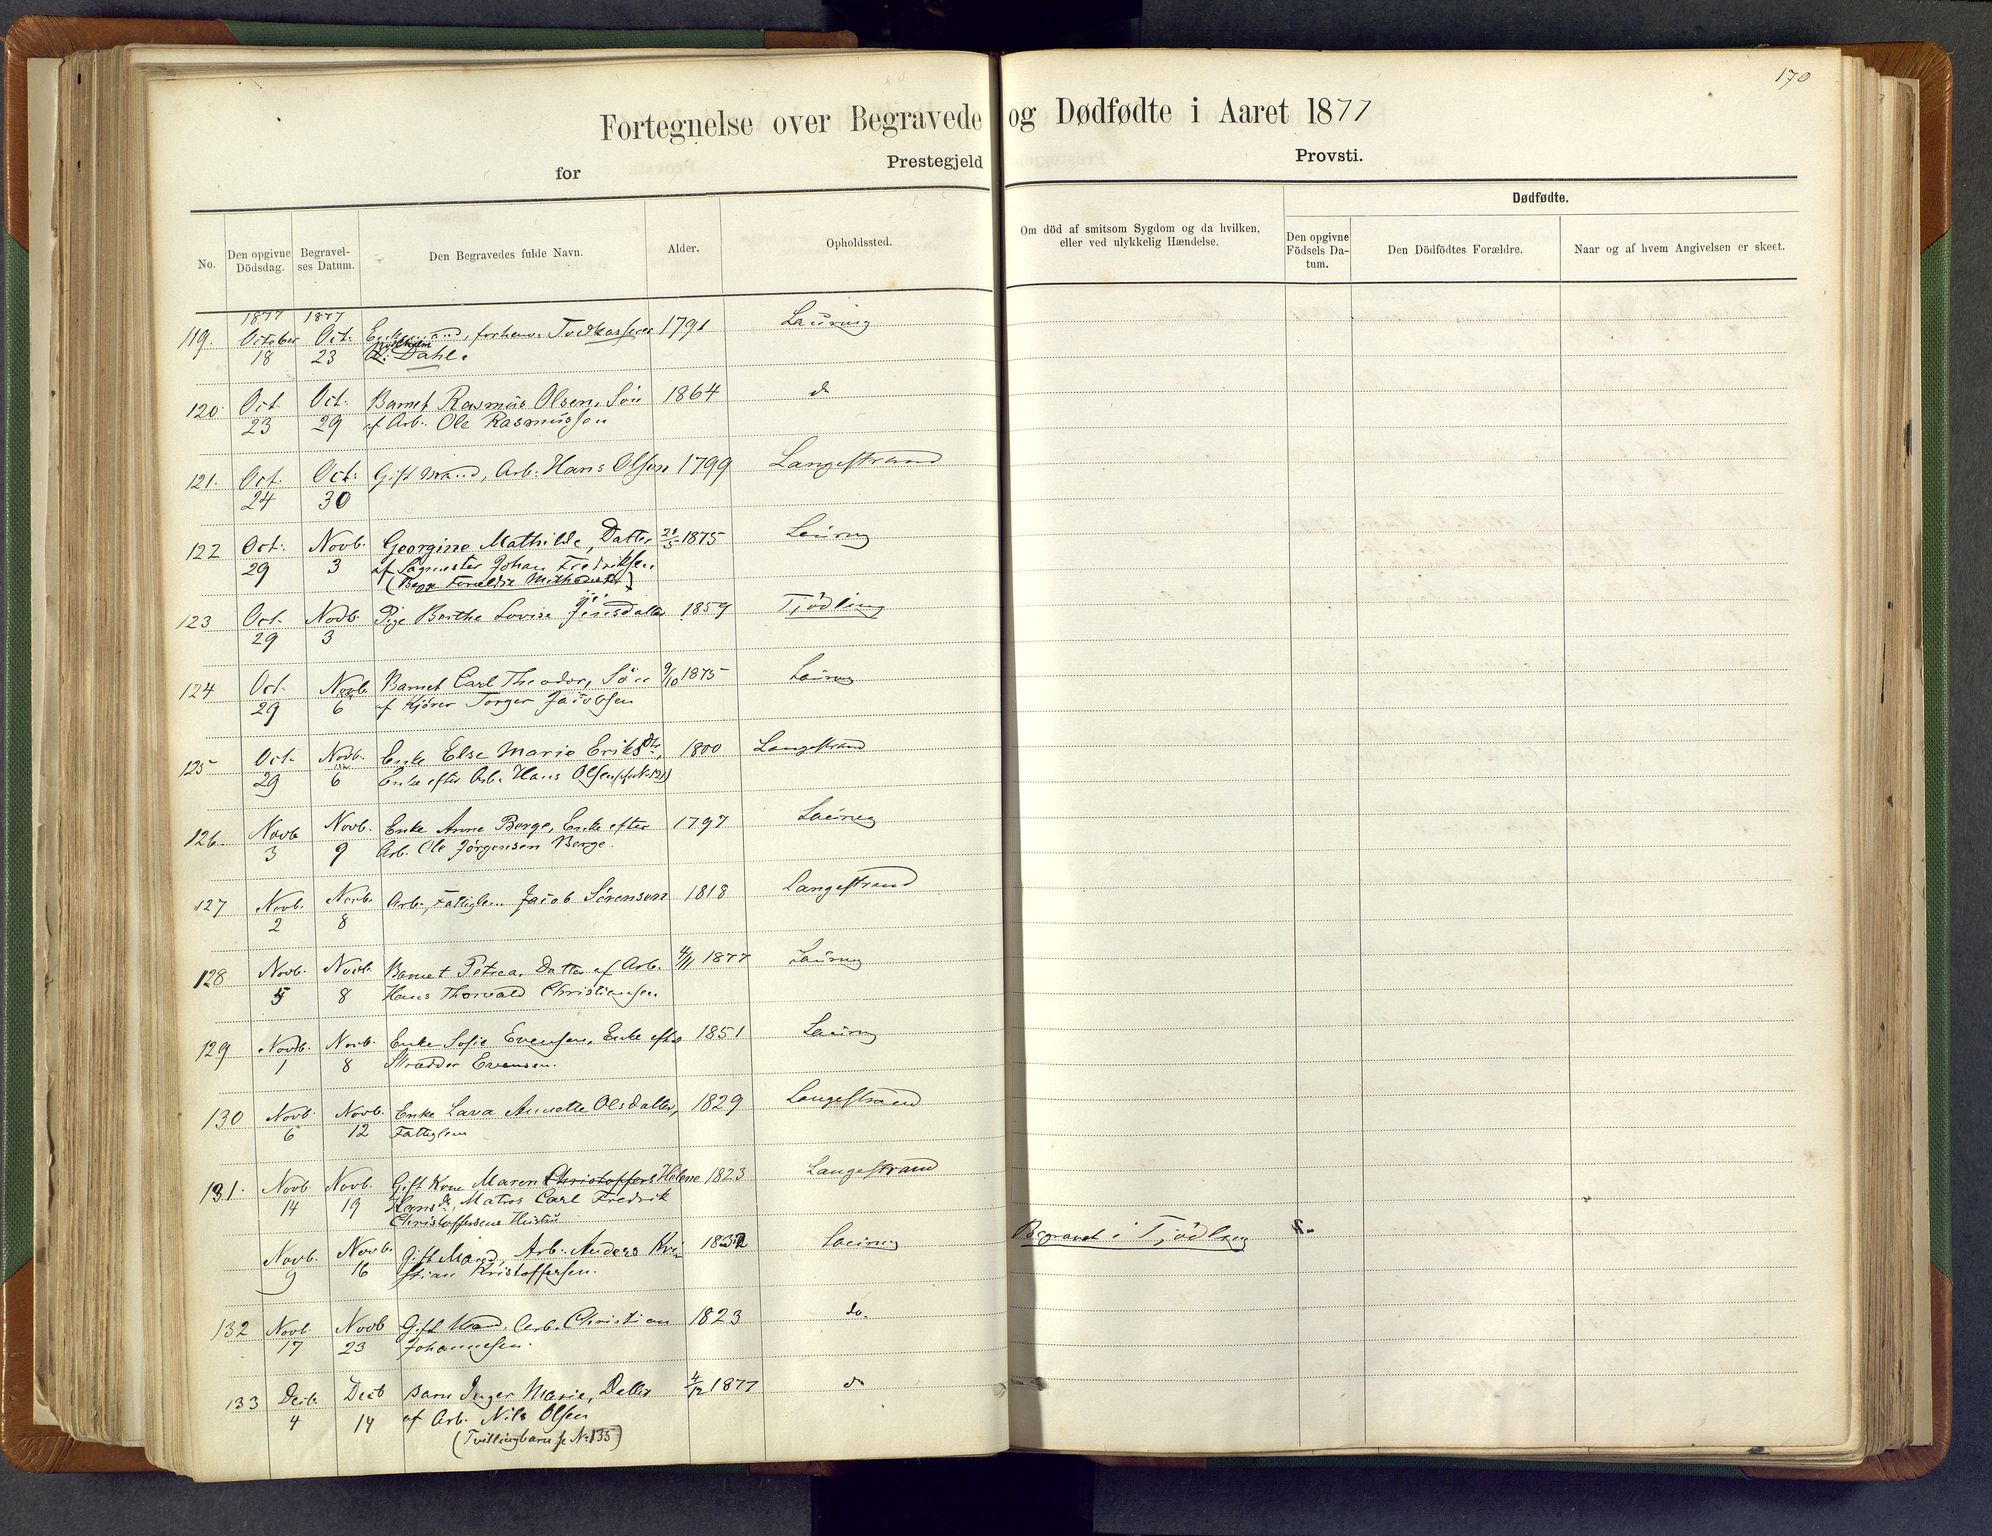 170
Fortegnelse over Begravede og Dødfødte i Aaret 1877
for Prestegjeld Provsti.
No.
Den opgivne Dödsdag.
Begravelses Datum.
Den Begravedes fulde Navn.
Alder.
Opholdssted.
Om död af smitsom Sygdom og da hvilken, eller ved ulykkelig Hændelse.
Dødfødte.
Den opgivne Födsels Datum.
Den Dödfödtes Forældre.
Naar og af hvem Angivelsen er skeet.
1877 1877
119. October Oct. Enkemand, forhenv. Toldkasserer 1791 Laurvig
18 23 Dahl.
120 Oct Oct. Barnet Rasmus Olsen, Søn 1864 do
23 29 af Arb. Ole Rasmussen
121. Oct. Oct. Gift Mand, Arb. Hans Olsen 1799 Langestrand
24 30
122 Oct. Novb. Georgine Mathilde, Datter 1875 Laurvig
29 3 af Sagmester Johan Fredriksen.
(Begge Forældre Methodister)
123 Oct. Novb. Pige Berthe Lovise Jensdatter 1859 Tjödling
29 3
124 Oct. Novb. Barnet Carl Theodor, Søn 9/10 1875 Laurvig
29 6 af Kjører Torger Jacobsen
125 Oct. Novb. Enke Else Marie Eriksdtr, 1800 Langestrand
29 6 Enke efter Arb. Hans Olsen (se No 121)
126 Novb Novb. Enke Anne Berge, Enke efter 1797 Laurvig
3 9 Arb. Ole Jörgensen Berge.
127 Novb. Novb. Arb., Fattiglem Jacob Sörensen 1818 Langestrand
2 8
128 Novb. Novb. Barnet Petrea, Datter af Arb. 4/11 1877 Laurvig
5 8 Hans Thorvald Christiansen
129 Novb. Novb. Enke Sofie Evensen, Enke efter 1851 Laurvig
1 8 Skrædder Evensen.
130 Novb. Novb. Enke Lava Annette Olsdatter, 1829 Langestrand
6 12 Fattiglem
131. Novb Novb. Gift Kone Maren Christoffers Helene 1823 Langestrand
14 19 Hansd., Matros Carl Fredrik
Christoffersens Hustru
Novb. Novb. Gift Mand, Arb. Anders Kri- 1832 Laurvig Begravet i Tjödling
9 16 stian Kristoffersen.
132 Novb. Novb Gift Mand, Arb. Christian 1823 do.
17 23 Johannesen.
133 Decb. Decb Barn Inger Marie, Datter 4/12 1877 do
4 14 af Arb. Nils Olsen
(Tvillingbarn se No 135)